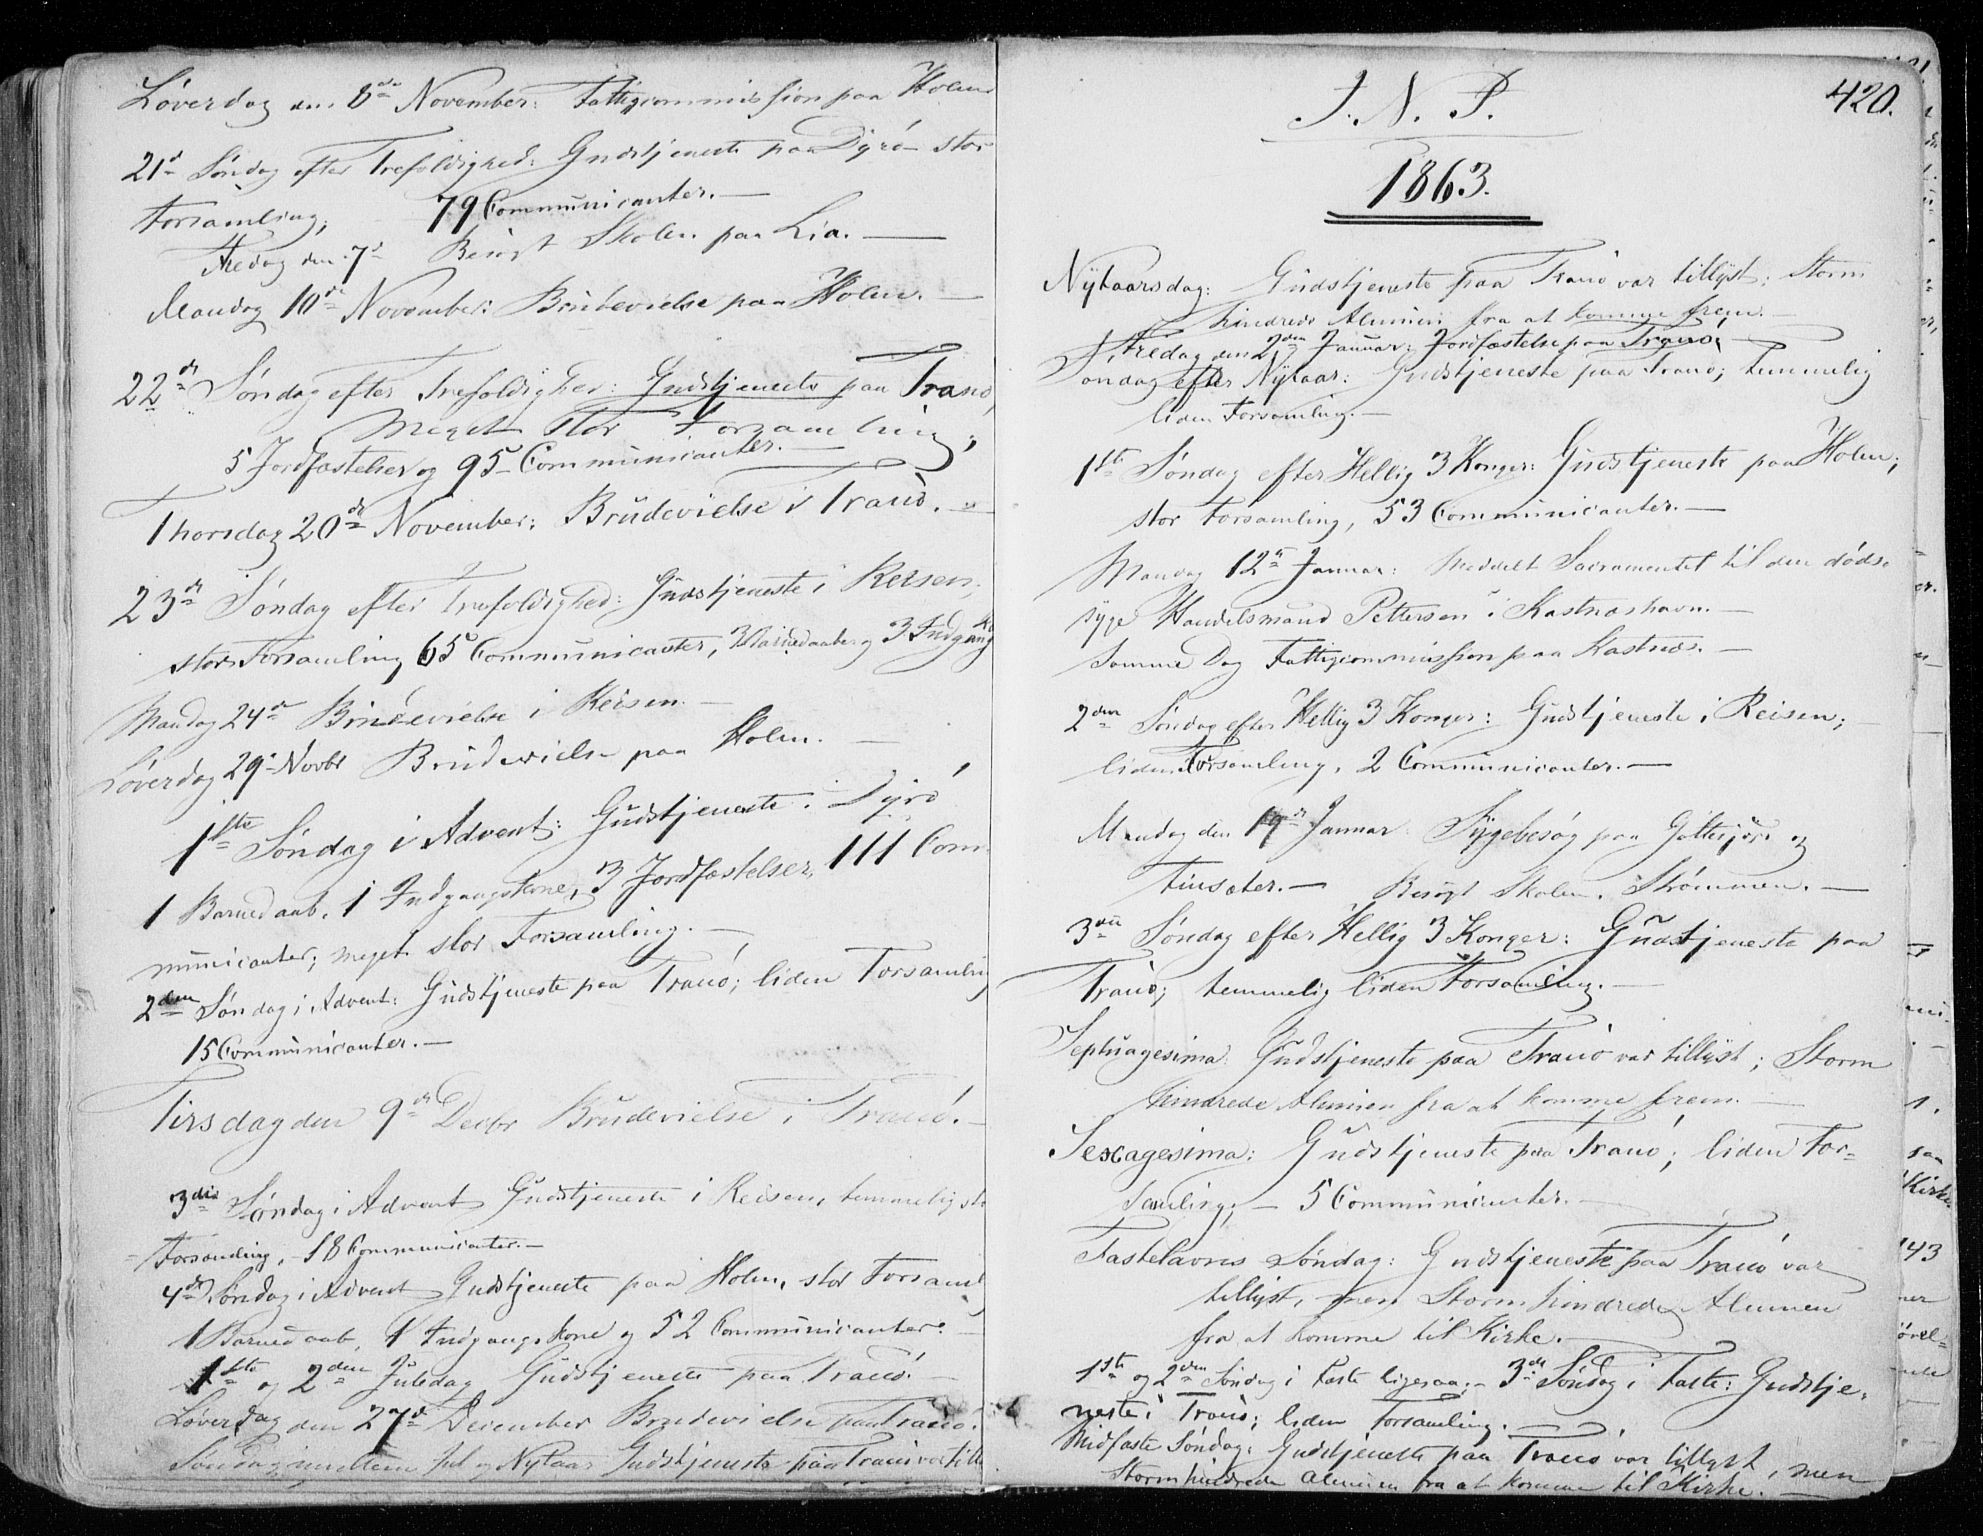 Løverdag den 8de November: Fattigcommission paa Holm
21d Søndag efter Trefoldighed: Gudstjeneste paa Dyrö stor
Forsamling, 79 Communicanter. —
Fredag den 7d Besøgt Skolen paa Lia. —
Mandag 10de November: Brudevielse paa Holm. —
22de Søndag efter Trefoldighed: Gudstjeneste paa Tranö,
Meget stor Forsamling;
5 Jordfæstelser og 95 Communicanter. —
Thorsdag 20de November: Brudevielse i Tranö. —
23de Søndag efter Trefoldighed: Gudstjeneste i Reisen,
stor Forsamling 65 Communicanter, 3 Barnedaab og 3 Indgangsk
Mandag 24de Brudevielse i Reisen. —
Løverdag 29d Novbr Brudevielse paa Holm. —
1ste Søndag i Advent: Gudstjeneste i Dyrö
1 Barnedaab, 1 Indgangskone, 3 Jordfæstelser, 111 Com-
municanter; meget stor Forsamling. —
2den Søndag i Advent: Gudstjeneste paa Tranö; liden Forsamling
15 Communicanter. —
Tirsdag den 9de Decbr Brudevielse i Tranö. —
3die Søndag i Advent Gudstjeneste i Reisen, temmelig sto
Forsamling, 18 Communicanter. —
4de Søndag i Advent Gudstjeneste paa Holm, stor Forsaml
1 Barnedaab, 1 Indgangskone og 52 Communicanter. —
1ste og 2den Juledag Gudstjeneste paa Tranö. —
Løverdag den 27de December Brudevielse paa Tranö.
Søndag imellem Jul og Nytaar Gudstjeneste paa Tranö var till
420.
I. N. J.
1863.
Nytaarsdag: Gudstjeneste paa Tranö var tillyst; Storm
hindrede Almuen fra at komme frem. —
Fredag den 2den Januar: Jordfæstelse paa Tranö. —
Søndag efter Nytaar: Gudstjeneste paa Tranö; temmelig
liden Forsamling. —
1ste Søndag efter Hellig 3 Konger: Gudstjeneste paa Holm;
stor Forsamling, 53 Communicanter. —
Mandag 12te Januar: Meddelt Sacramentet til den døds-
syge Handelsmand Pettersen i Kastnæshavn. —
Samme Dag Fattigcommission paa Kastnæs. —
2den Søndag efter Hellig 3 Konger: Gudstjeneste i Reisen;
liden Forsamling, 2 Communicanter. —
Mandag den 19de Januar Sygebesøg paa og
Finsæter. — Besøgt Skolen i Strömmen. —
3die Søndag efter Hellig 3 Konger: Gudstjeneste paa
Tranö; temmelig liden Forsamling. —
Septuagesima: Gudstjeneste paa Tranö var tillyst; Storm
hindrede Almuen fra at komme frem. —
Sexagesima: Gudstjeneste paa Tranö; liden For-
samling; — 5 Communicanter. —
Fastelavns Søndag: Gudstjeneste paa Tranö var
tillyst, men Storm hindrede Almuen
fra at komme til Kirke. —
1ste og 2den Søndag i Faste ligesaa; — 3de Søndag i Faste: Gudstje-
neste i Tranö; liden Forsamling. —
Midfaste Søndag: Gudstjeneste paa Tranö var tillyst, men
Storm hindrede Almuen fra at komme til Kirke. —